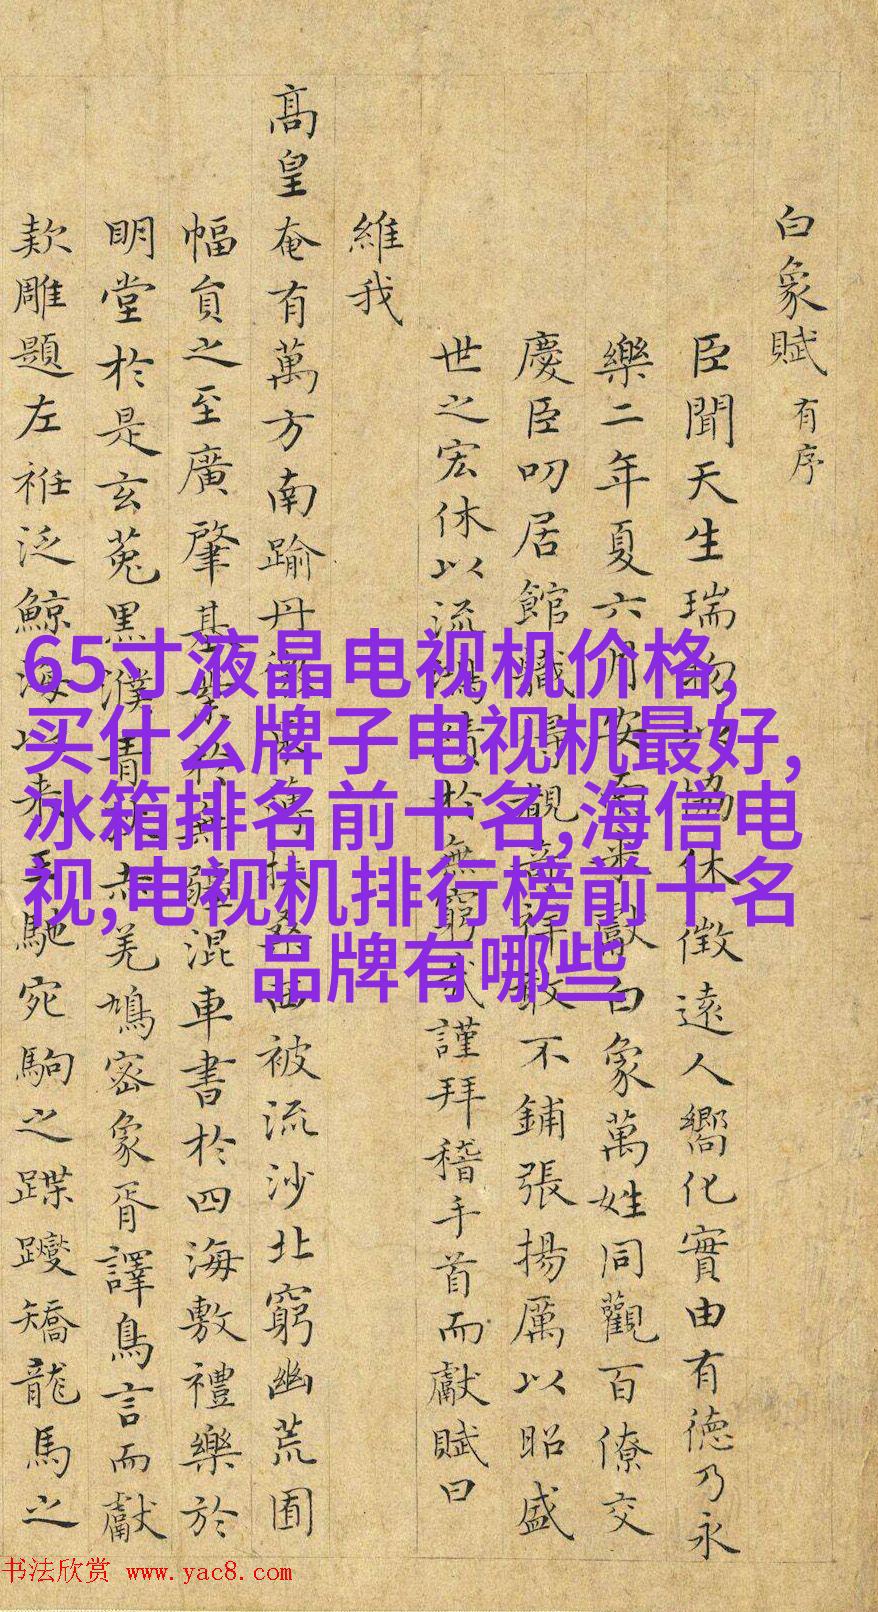 白象賦 有序
臣聞天生瑞物以協休徵遠人嚮化實由有德乃永
樂二年夏六月安南來獻白象萬姓同觀百僚交
慶臣叨居館職觀祥敢不鋪張揚厲以昭盛
世之宏休以流鴻績於無窮哉謹拜稽手首而獻賦曰
維我
高皇奄有萬方南踰丹徼東薄扶桑西被流沙北窮幽荒囿
幅員之至廣肇基業於無疆混車書於四海敷禮樂於
明堂於是玄菟黑濮青狄赤羌鳩密象胥譯鳥言而獻
款雕題左袵泛鯨海以來王馳宛駒之蹀躞矯龍馬之
65寸液晶电视机价格,
买什么牌子电视机最好,
冰箱排名前十名,海信电
视,电视机排行榜前十名
品牌有哪些
书法欣赏 www.yac8.com